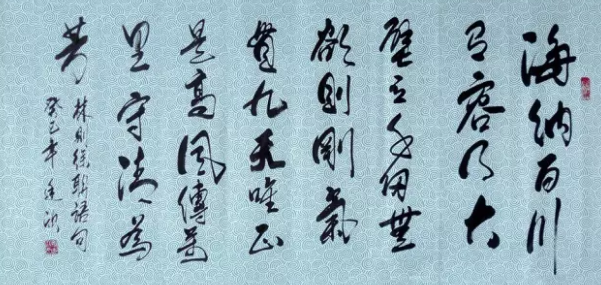 海納百川
有容乃大
壁立千仞無
欲則剛氣
貫九天唯正
是高風傳萬
里守清為
芳
林則徐聯語句
癸巳年